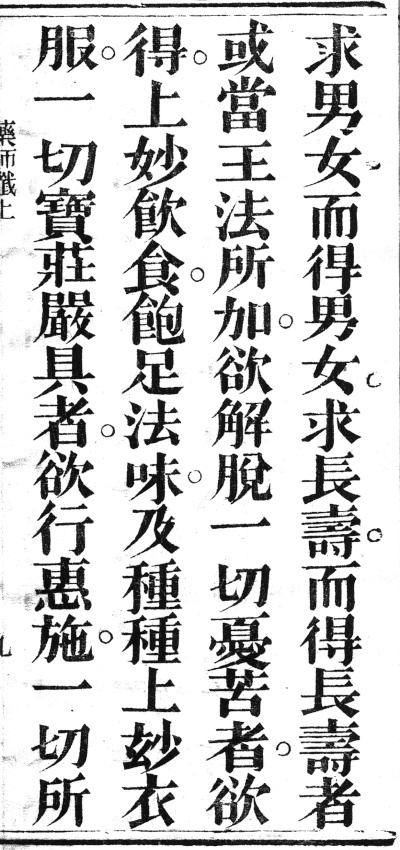 求男女而得男女求長壽。而得長壽者
或當王法所加。欲解脫一切憂苦者。欲
得。上妙飲食。飽足法味。及種種上妙衣
服。一切寶莊嚴具者。欲行惠施。一切所
藥師懺上
九